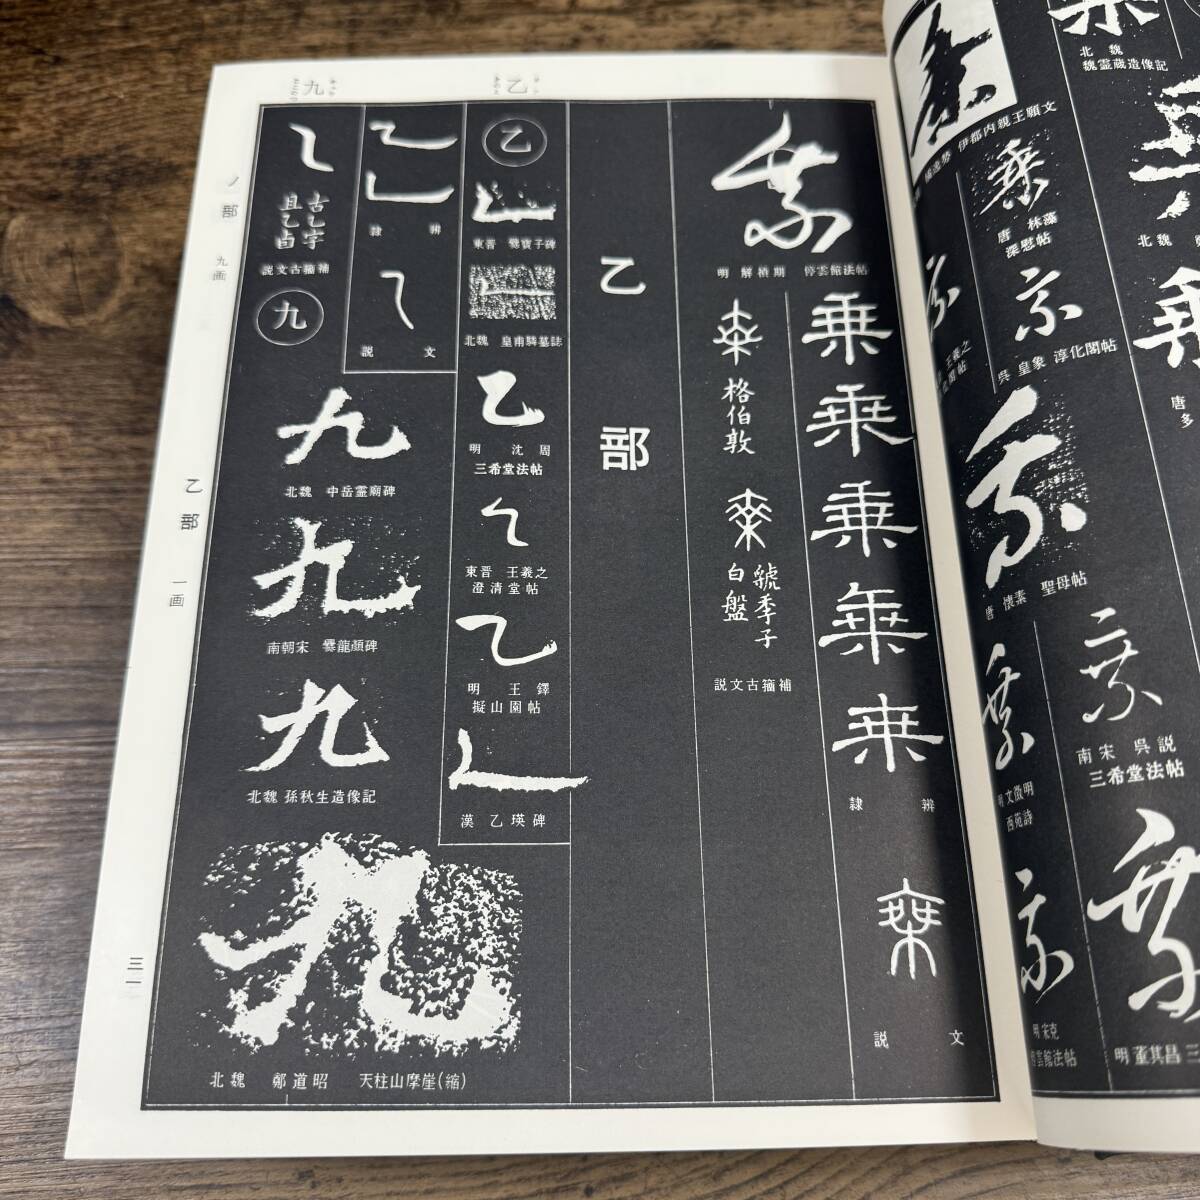 乙
九
ノ部
九画
乙部
一画
三一
乗
明 解楨期 停雲館法帖
乗
乗
乗
乗
乗
隷辨
乗
説文
格伯敦
虢季子白盤
説文古籀補
乙部
乙
東晋 爨寶子碑
北魏 皇甫驎墓誌
乙
明 沈周
三希堂法帖
乙
東晋 王羲之
澄清堂帖
乙
明 王鐸
擬山園帖
乙
漢 乙瑛碑
乙
隷辨
乙
説文
乙
古乙字
且乙卣
説文古籀補
九
九
北魏 中岳霊廟碑
九
南朝宋 爨龍顔碑
九
北魏 孫秋生造像記
九
北魏 鄭道昭 天柱山摩崖(縮)
北魏
魏霊蔵造像記
橘逸勢 伊都内親王願文
唐 林藻
深慰帖
呉 皇象 淳化閣帖
王羲之
唐 懐素 聖母帖
南宋 呉説
三希堂法帖
明 文徴明
西苑詩
明 宋克
停雲館法帖
明 董其昌
北魏
唐